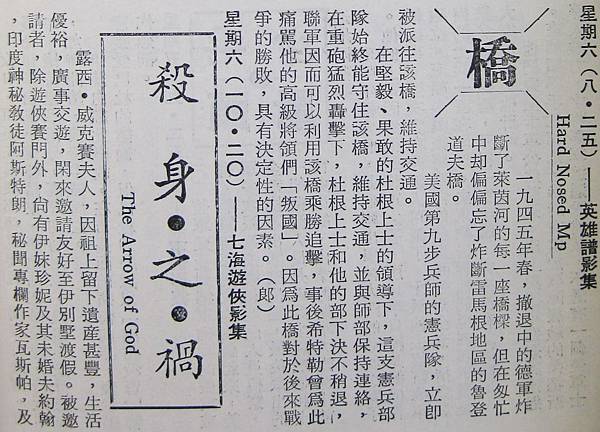 星期六(八•二五)——英雄譜影集
Hard Nosed Mp
橋
一九四五年春,撤退中的德軍炸
斷了萊茵河的每一座橋樑,但在匆忙
中却偏偏忘了炸斷雷馬根地區的魯登
道夫橋。
美國第九步兵師的憲兵隊,立即
被派往該橋,維持交通。
在堅毅、果敢的杜根上士的領導下,這支憲兵部
隊始終能守住該橋,維持交通,並與師部保持連絡,
在重砲猛烈轟擊下,杜根上士和他的部下決不稍退,
聯軍因而可以利用該橋乘勝追擊,事後希特勒曾爲此
痛駡他的高級將領們「叛國」。因爲此橋對於後來戰
爭的勝敗,具有決定性的因素。(郎)
星期六(一〇•二〇)——七海遊俠影集
殺身之禍
The Arrow of God
露西•威克賽夫人,因祖上留下遺產甚豐,生活
優裕,廣事交遊,閑來邀請友好至伊別墅渡假。被邀
請者,除遊俠賽門外,尚有伊妹珍妮及其未婚夫約翰
,印度神秘教徒阿斯特朗,秘聞專欄作家瓦斯帕,及